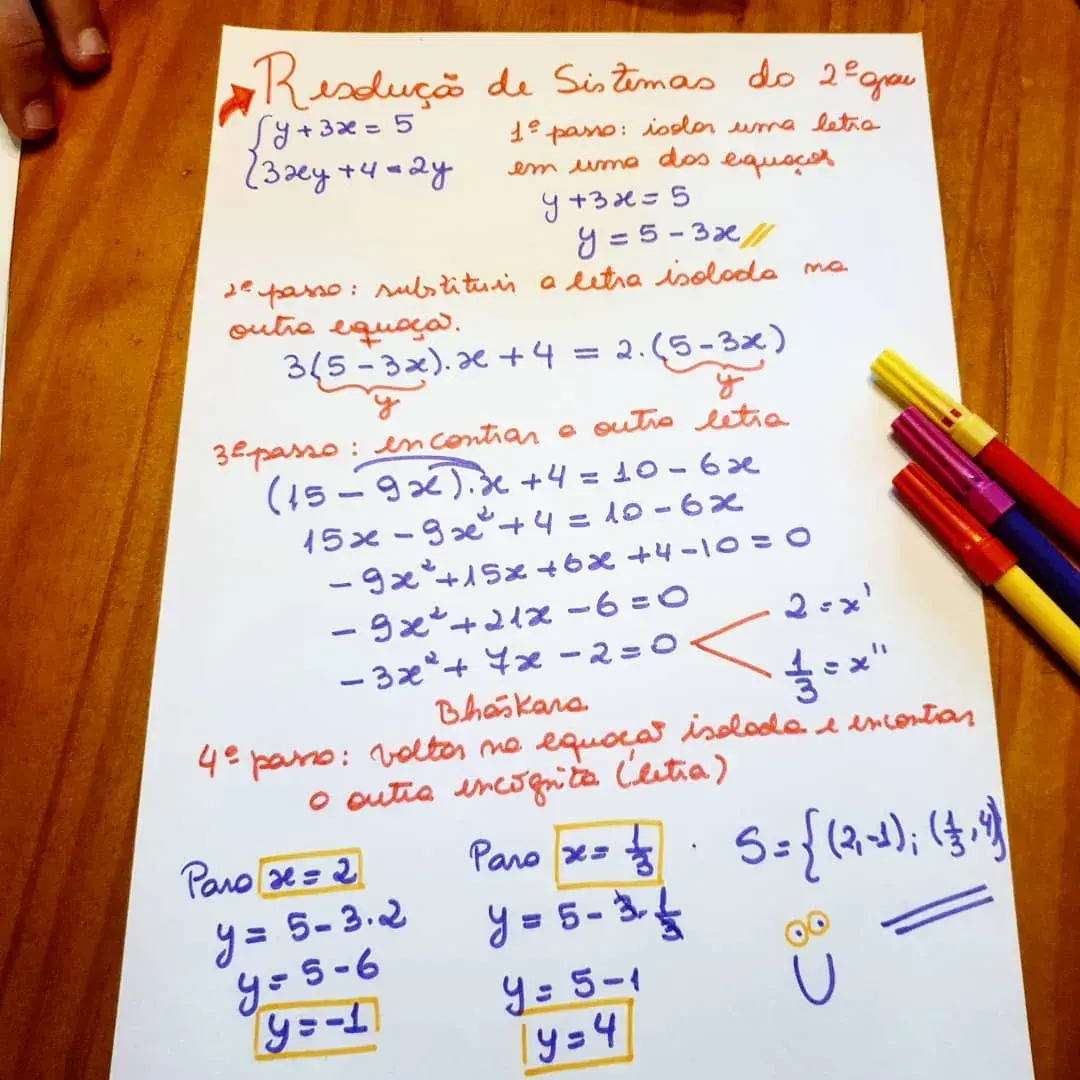 Resolução de Sistemas do 2º grau
{y + 3x = 5
{3xy + 4 = 2y
1º passo: isolar uma letra
em uma das equações
y + 3x = 5
y = 5 - 3x //
2º passo: substituir a letra isolada na
outra equação.
3(5 - 3x).x + 4 = 2.(5 - 3x)
y y
3º passo: encontrar a outra letra
(15 - 9x).x + 4 = 10 - 6x
15x - 9x² + 4 = 10 - 6x
- 9x² + 15x + 6x + 4 - 10 = 0
- 9x² + 21x - 6 = 0
- 3x² + 7x - 2 = 0
2 = x'
1/3 = x''
Bháskara
4º passo: voltar na equação isolada e encontrar
a outra incógnita (letra)
Para x = 2
y = 5 - 3.2
y = 5 - 6
y = -1
Para x = 1/3
y = 5 - 3.1/3
y = 5 - 1
y = 4
S = {(2,-1); (1/3, 4)}